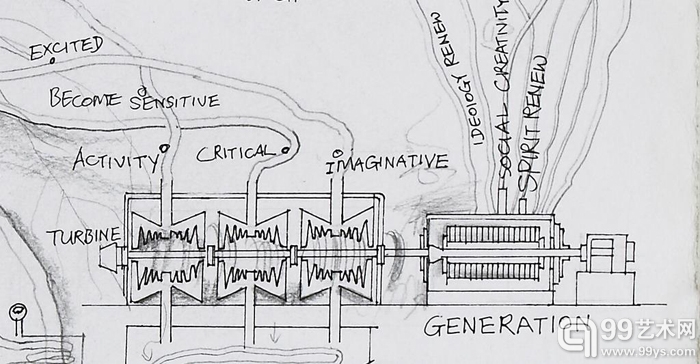 EXCITED
BECOME SENSITIVE
ACTIVITY
CRITICAL
IMAGINATIVE
IDEOLOGY RENEW
SOCIAL CREATIVITY
SPIRIT RENEW
TURBINE
GENERATION
99艺术网
www.99ys.com